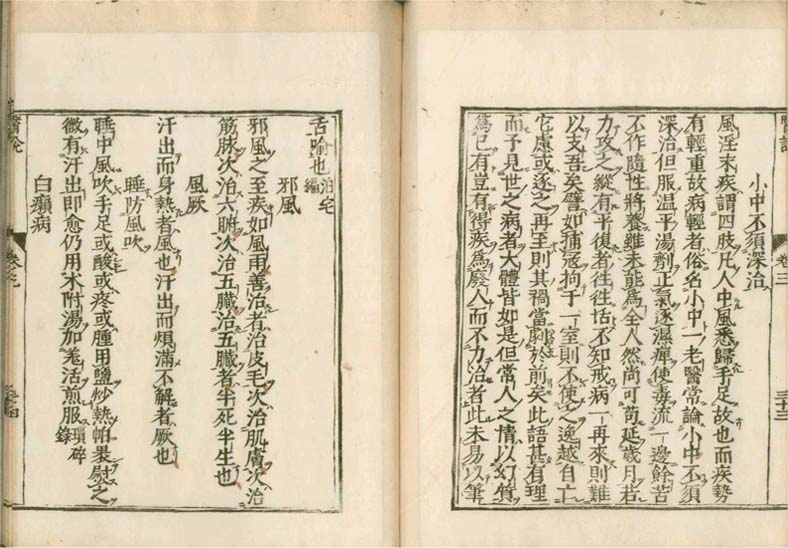 醫說
卷三
三十三
小中不須深治
風淫末疾謂四肢凡人中風悉歸手足故也而疾勢
有輕重故病輕者俗名小中一老醫常論小中不須
深治但服温平湯劑正氣逐濕痺使毒流一邊餘苦
不作隨性將養雖未能為全人然尚可苟延歲月若
力攻之縱有平復者往往恬不知戒病一再來則難
以支吾矣譬如捕冦拘于一室則不使之逸越自亡
它慮或逐之再至則其禍當劇於前矣此語甚有理
而予見世之病者大體皆如是但常人之情以幻質
為已有豈有得疾為廢人而不力治者此未易以筆
舌喻也泊宅編
邪風
邪風之至疾如風雨善治者治皮毛次治肌膚次治
筋脉次治六腑次治五臓治五臓者半死半生也
風厥
汗出而身熱者風也汗出而煩滿不解者厥也
睡防風吹
睡中風吹手足或酸或疼或腫用鹽炒熱帕裹熨之
微有汗出即愈仍用朮附湯加羌活煎服瑣碎錄
白癩病